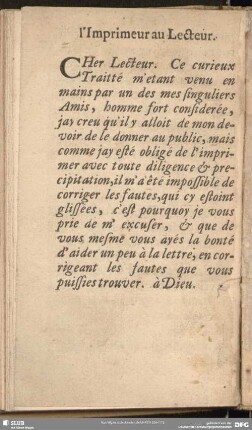 l'Imprimeur au Lecteur.
CHer Lecteur. Ce curieux
Traitté m'etant venu en
mains par un des mes singuliers
Amis, homme fort considerée,
jay creu qu'il y alloit de mon de-
voir de le donner au public, mais
comme jay esté obligé de l'impri-
mer avec toute diligence & pre-
cipitation, il m'a été impossible de
corriger les fautes, qui cy estoint
glissées, c'est pourquoy je vous
prie de m' excuser, & que de
vous mesme vous ayés la bonté
d'aider un peu à la lettre, en cor-
rigeant les fautes que vous
puissies trouver. à Dieu.
SLUB
DFG